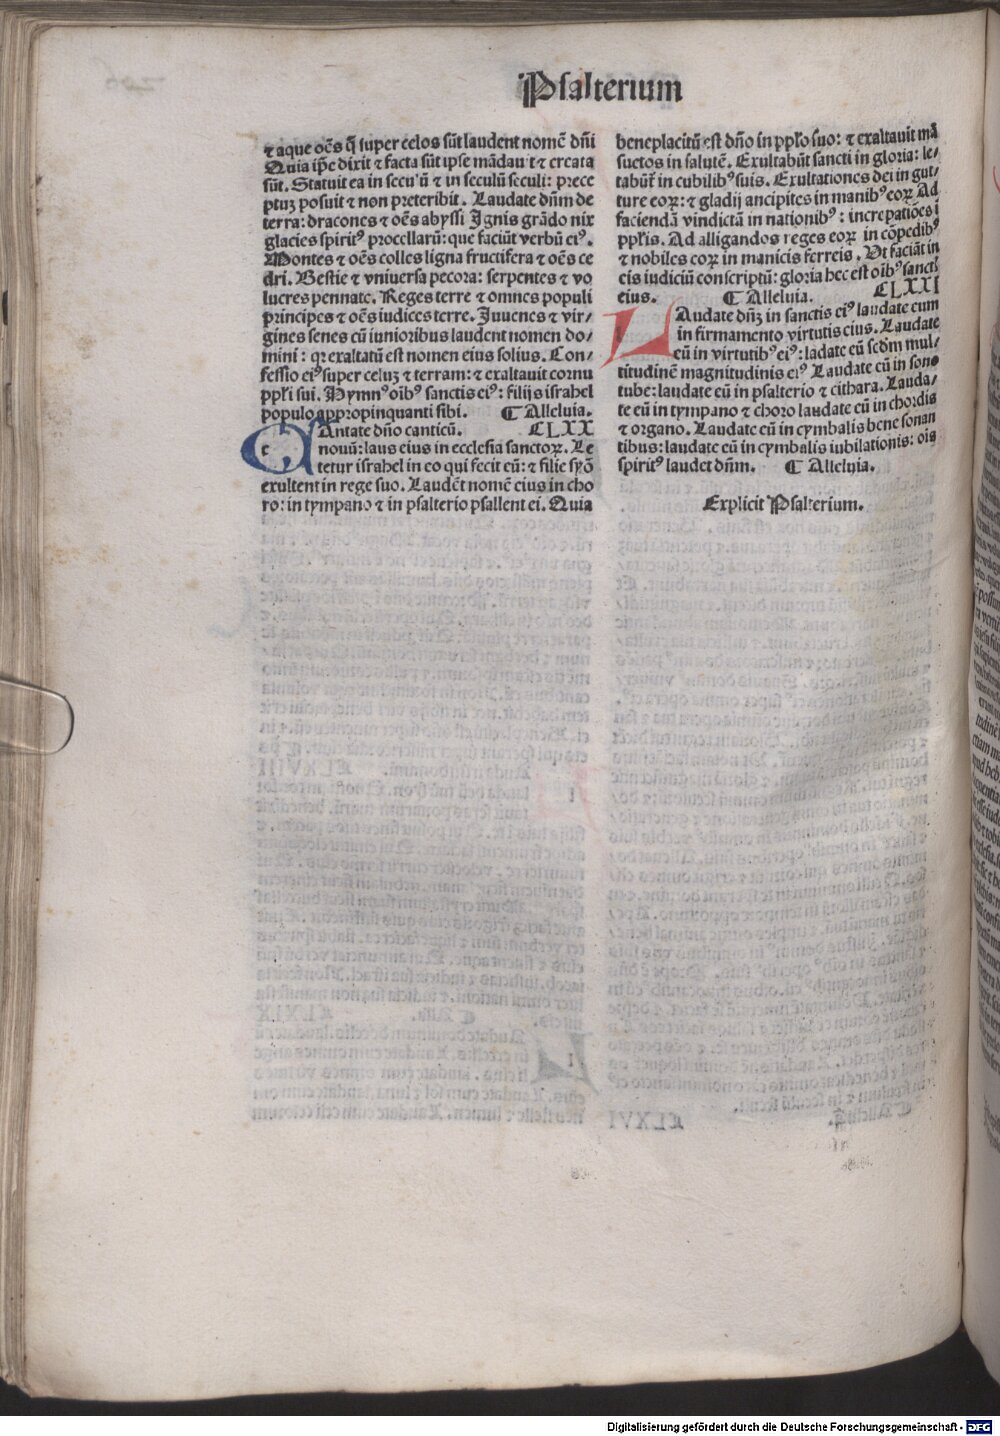 Psalterium
⁊ aque oẽs q̃ super celos sũt laudent nomẽ dñi
Quia ip̃e dixit ⁊ facta sũt ipse mãdauit ⁊ creata
sũt. Statuit ea in secu'ũ ⁊ in seculũ seculi: prece
ptuꝫ posuit ⁊ non preteribit. Laudate dñm de
terra: dracones ⁊ oẽs abyssi Ignis grãdo nix
glacies spiritꝰ procellarũ: que faciũt verbũ eiꝰ.
Montes ⁊ oẽs colles ligna fructifera ⁊ oẽs ce
dri. Bestie ⁊ vniuersa pecora: serpentes ⁊ vo
lucres pennate. Reges terre ⁊ omnes populi
principes ⁊ oẽs iudices terre. Juuenes ⁊ vir/
gines senes cũ iunioribus laudent nomen do/
mini: qꝛ exaltatũ est nomen eius solius. Con/
fessio eiꝰ super celuꝫ ⁊ terram: ⁊ exaltauit cornu
pp̃li sui. Hymnꝰ oĩbꝰ sanctis eiꝰ: filijs israhel
populo appropinquanti sibi. ¶ Alleluia.
CAntate dño canticũ. CLXX
nouũ: laus eius in ecclesia sanctoꝝ. Le
tetur israhel in eo qui fecit eũ: ⁊ filie syõ
exultent in rege suo. Laudẽt nomẽ eius in cho
ro: in tympano ⁊ in psalterio psallent ei. Quia
beneplacitũ est dño in pp̃lo suo: ⁊ exaltauit mã
suetos in salutẽ. Exultabũt sancti in gloria: le/
tabũt̃ in cubilibꝰ suis. Exultationes dei in gut/
ture eoꝝ: ⁊ gladij ancipites in manibꝰ eoꝝ Ad
faciendã vindictã in nationibꝰ: increpatiões ĩ
pp̃lis. Ad alligandos reges eoꝝ in cõpedibꝰ
⁊ nobiles eoꝝ in manicis ferreis. Vt faciãt in
eis iudiciũ conscriptũ: gloria hec est oĩbꝰ sanctꝭ
eius. ¶ Alleluia. CLXXI
LAudate dñꝫ in sanctis eiꝰ laudate eum
in firmamento virtutis eius. Laudate
eũ in virtutibꝰ eiꝰ: ladate eũ scdm̃ mul/
titudinẽ magnitudinis eiꝰ Laudate eũ in sono
tube: laudate eũ in psalterio ⁊ cithara. Lauda/
te eũ in tympano ⁊ choro laudate eũ in chordis
⁊ organo. Laudate eũ in cymbalis bene sonan
tibus: laudate eũ in cymbalis iubilationis: oĩs
spiritꝰ laudet dñm. ¶ Alleluia.
Explicit Psalterium.
Digitalisierung gefördert durch die Deutsche Forschungsgemeinschaft - DFG